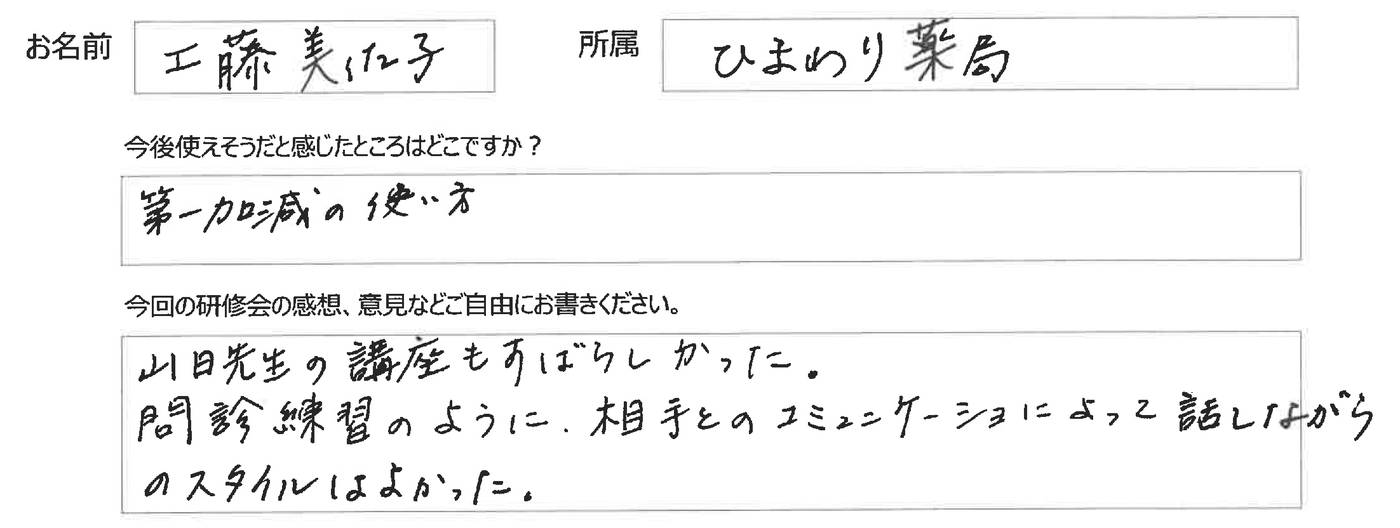 お名前 工藤美佐子 所属 ひまわり薬局
今後使えそうだと感じたところはどこですか？
第一加減の使い方
今回の研修会の感想、意見などご自由にお書きください。
山日先生の講座もすばらしかった。
問診練習のように、相手とのコミュニケーショによって話しながら
のスタイルはよかった。